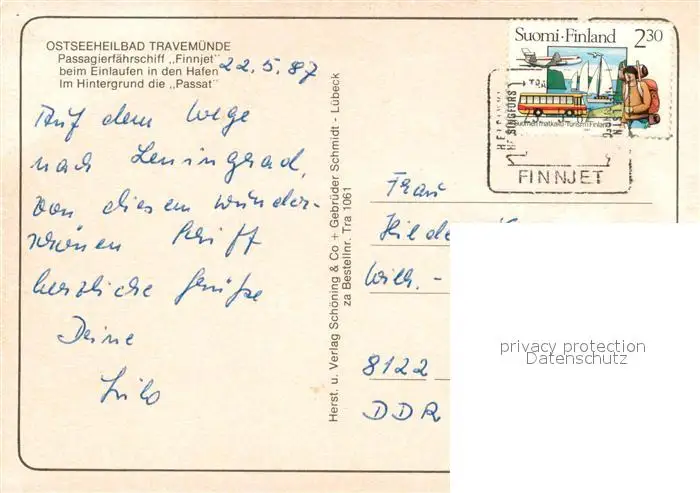 OSTSEEHEILBAD TRAVEMÜNDE
Passagierfährschiff „Finnjet"
beim Einlaufen in den Hafen
Im Hintergrund die „Passat"
22.5.87
Auf dem Wege
nach Leningrad,
von diesem wunder-
schönen Schiff
herzliche Grüße
Deine
Herst. u. Verlag Schöning & Co + Gebrüder Schmidt - Lübeck
za Bestellnr. Tra 1061
Suomi·Finland 2,30
Suomen matkailu-Turism i Finland
HELSINKI
HELSINGFORS
FINNJET
Frau
Hilde
Wilh. -
8122
DDR
privacy protection
Datenschutz